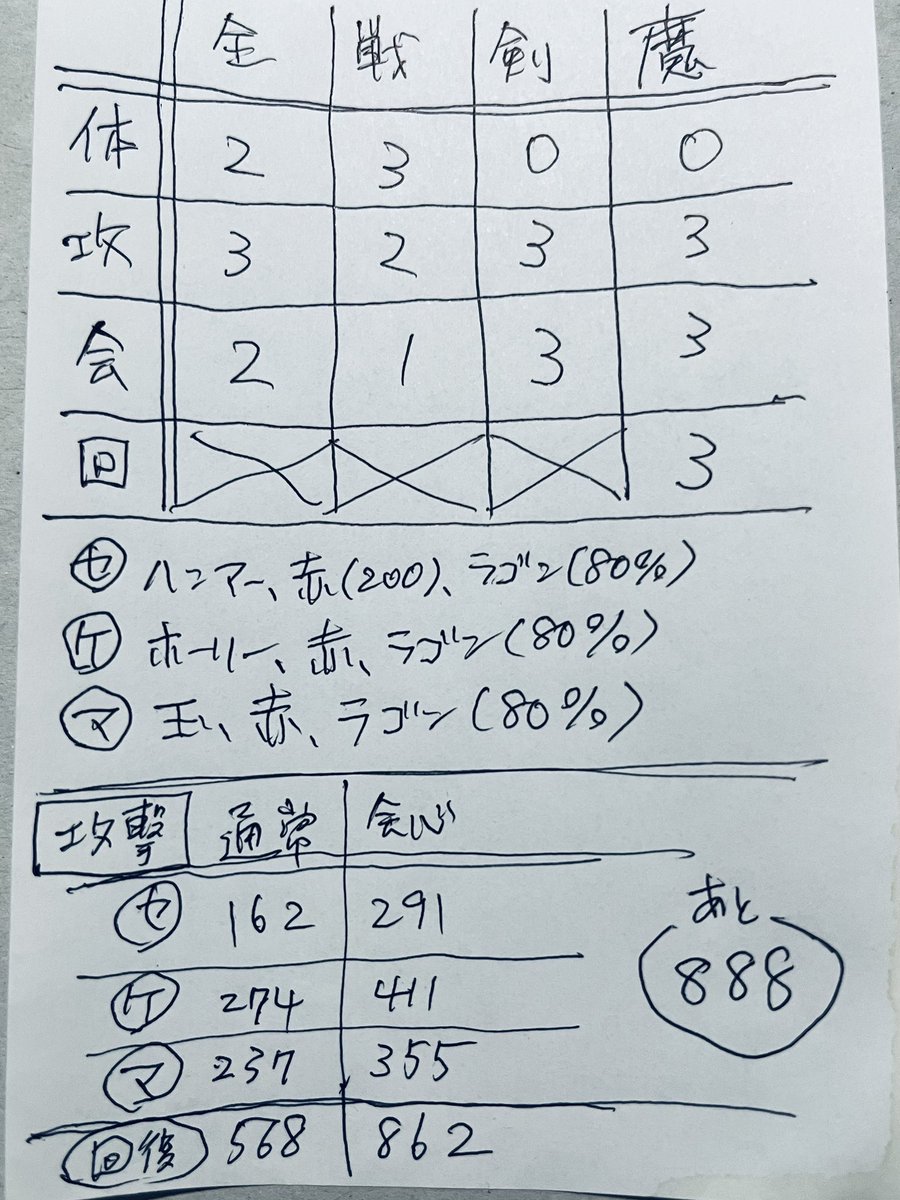 全 戦 剣 魔
体 2 3 0 0
攻 3 2 3 3
会 2 1 3 3
回 3
セ ハンマー、赤(200)、ラゴン(80%)
ケ ホーリー、赤、ラゴン(80%)
マ 王、赤、ラゴン(80%)
攻撃 通常 会心
セ 162 291
ケ 274 411
マ 237 355
回復 568 862
あと
888